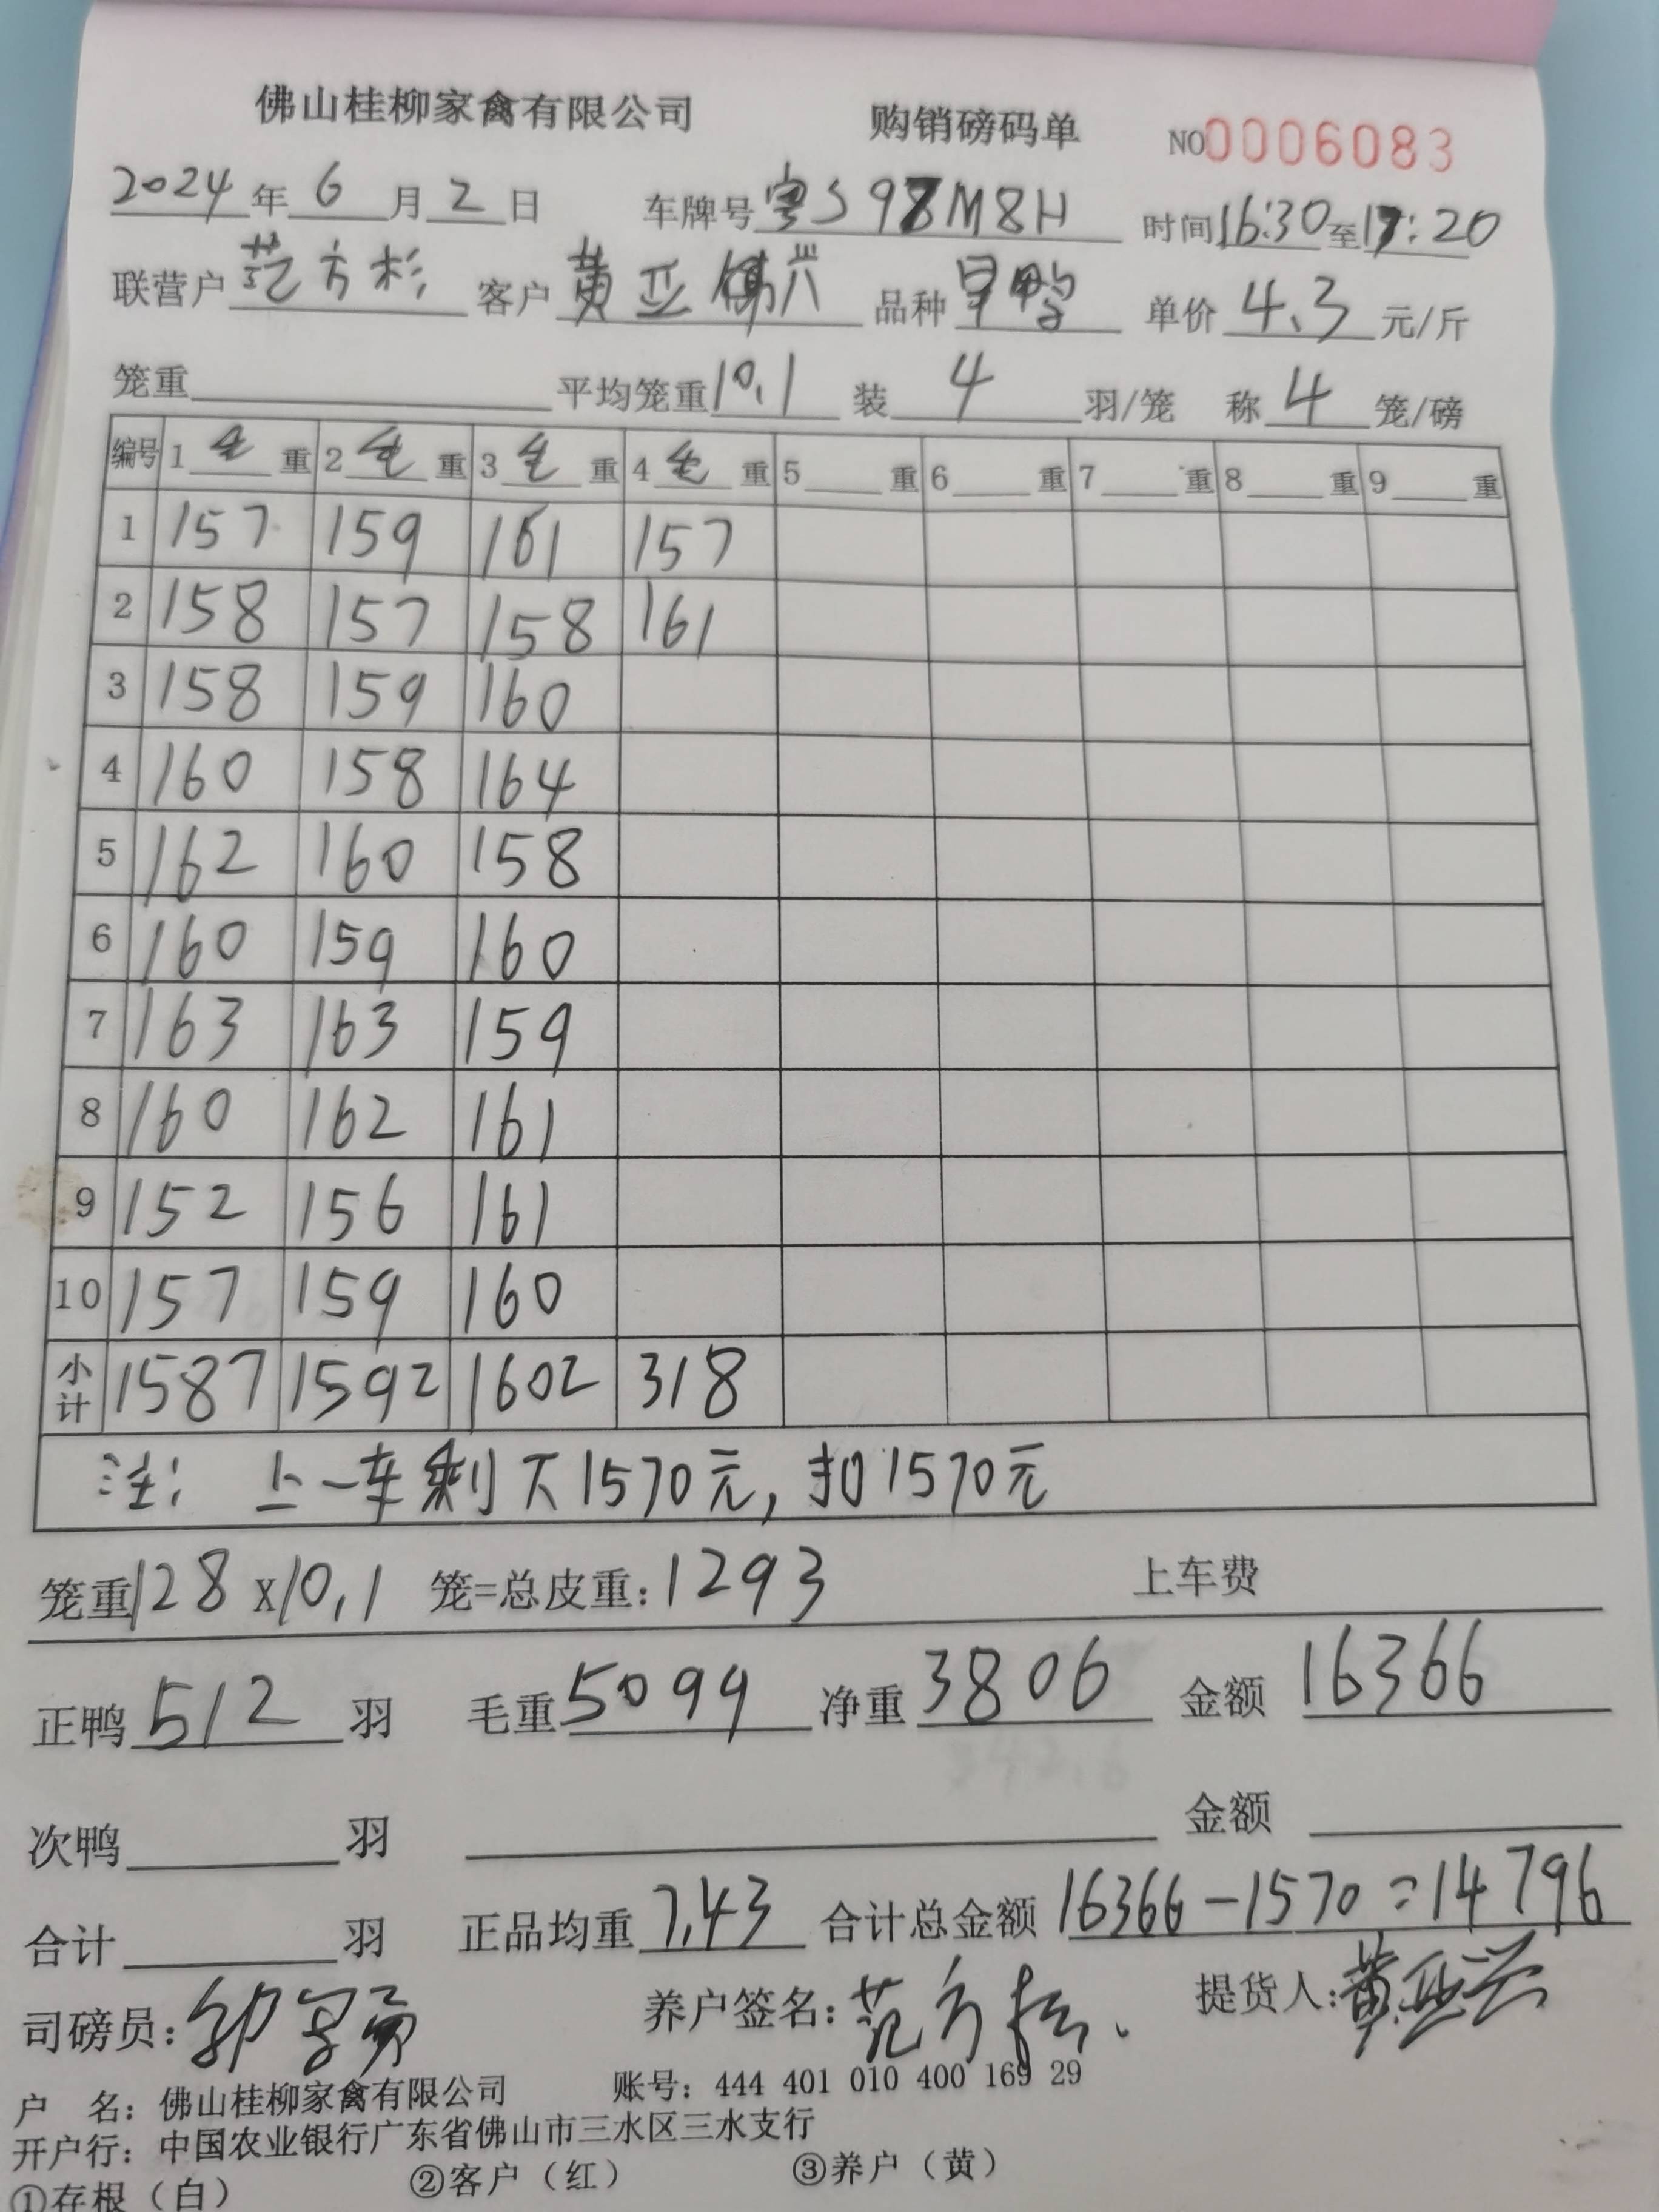 佛山桂柳家禽有限公司 购销磅码单 NO0006083
2024年6月2日 车牌号粤S98M8H 时间16:30至17:20
联营户范方杉 客户黄亚兴 品种旱鸭 单价4.3元/斤
笼重 平均笼重10.1 装4羽/笼 称4笼/磅
编号 1毛重 2毛重 3毛重 4毛重 5重 6重 7重 8重 9重
1 157 159 161 157
2 158 157 158 161
3 158 159 160
4 160 158 164
5 162 160 158
6 160 159 160
7 163 163 159
8 160 162 161
9 152 156 161
10 157 159 160
小计 1587 1592 1602 318
注: 上一车剩下1570元,扣1570元
笼重128x10.1笼=总皮重:1293 上车费
正鸭512羽 毛重5099 净重3806 金额16366
次鸭 羽 金额
合计 羽 正品均重7.43 合计总金额16366-1570=14796
司磅员: 养户签名:范方杉、 提货人:黄亚兴
户 名:佛山桂柳家禽有限公司 账号:444 401 010 400 169 29
开户行:中国农业银行广东省佛山市三水区三水支行
①存根(白) ②客户(红) ③养户(黄)